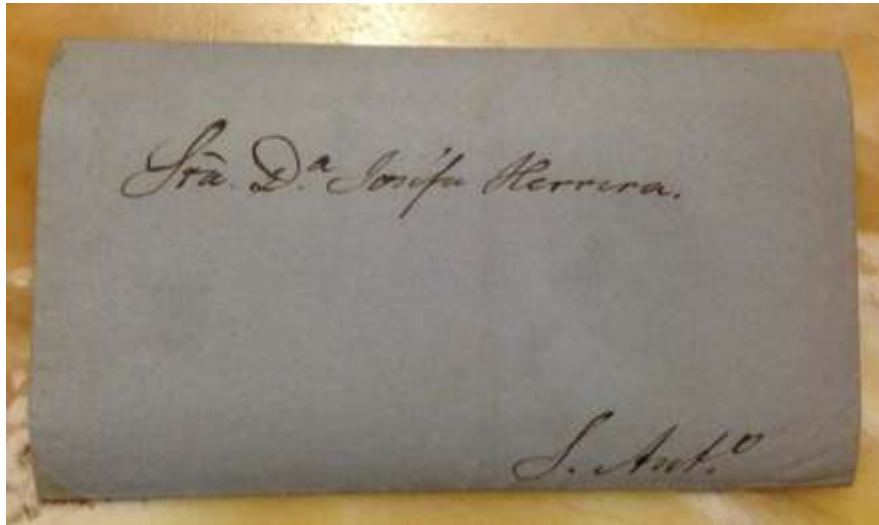 Sra. D.ª Josefa Herrera.
S. Ant.º